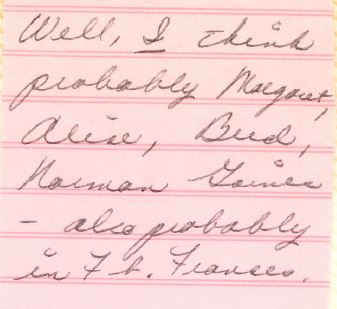 Well, I think
probably Margaret,
Alice, Bud,
Norman Gaines
- also probably
in Ft. Frances.